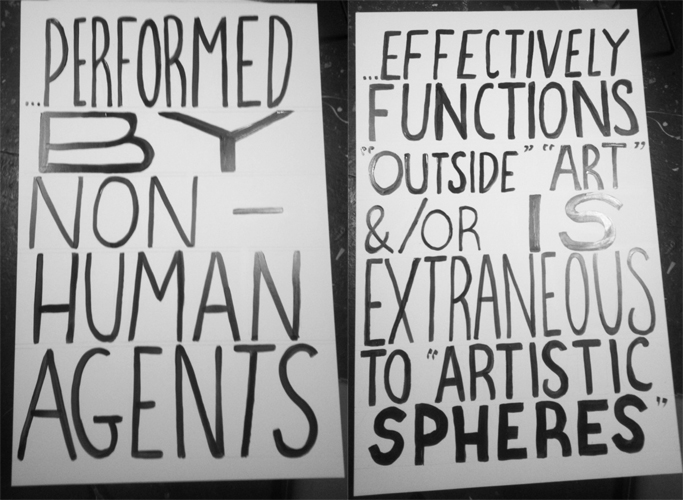 ...PERFORMED
BY
NON-
HUMAN
AGENTS
...EFFECTIVELY
FUNCTIONS
"OUTSIDE" "ART"
&/OR IS
EXTRANEOUS
TO "ARTISTIC
SPHERES"